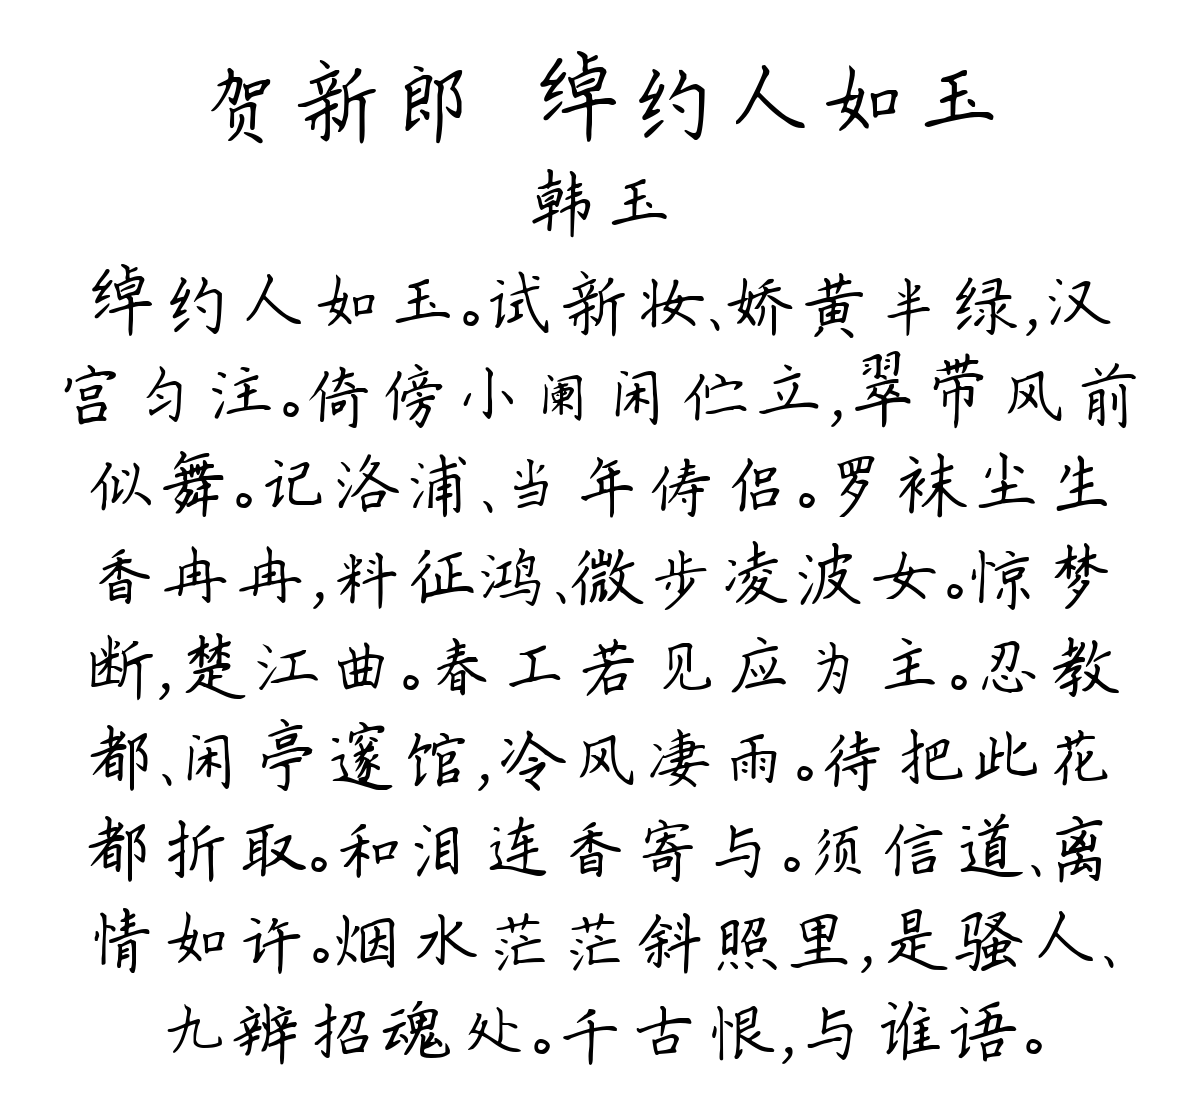 贺新郎 绰约人如玉
韩玉
绰约人如玉。试新妆、娇黄半绿,汉
宫匀注。倚傍小阑闲伫立,翠带风前
似舞。记洛浦、当年俦侣。罗袜尘生
香冉冉,料征鸿、微步凌波女。惊梦
断,楚江曲。春工若见应为主。忍教
都、闲亭邃馆,冷风凄雨。待把此花
都折取。和泪连香寄与。须信道、离
情如许。烟水茫茫斜照里,是骚人、
九辨招魂处。千古恨,与谁语。